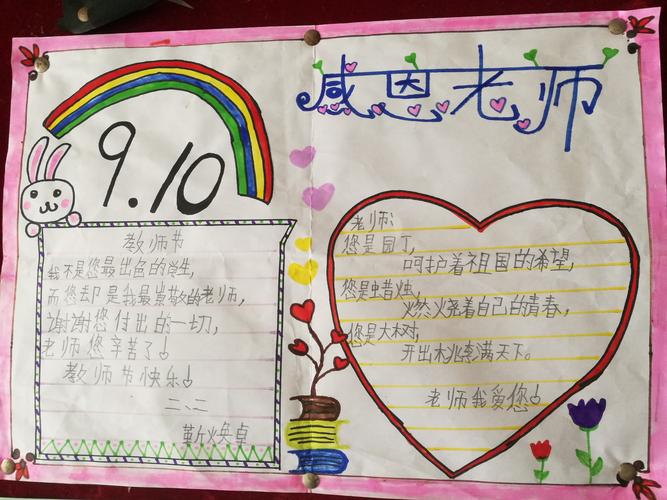 9.10
感恩老师
教师节
我不是您最出色的学生,
而您却是我最崇敬的老师,
谢谢您付出的一切,
老师您辛苦了!
教师节快乐!
二、二
靳焕卓
老师:
您是园丁,
呵护着祖国的希望,
您是蜡烛,
燃烧着自己的青春,
您是大树,
开出桃李满天下。
老师我爱您!